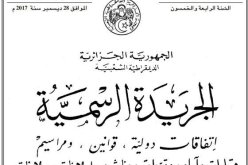 السنة الرابعة والخمسون
الموافق 28 ديسمبر سنة 2017 م
الجمهورية الجزائرية
الديمقراطية الشعبية
الجريدة الرسمية
إتفاقات دولية ، قوانين ، ومراسيم